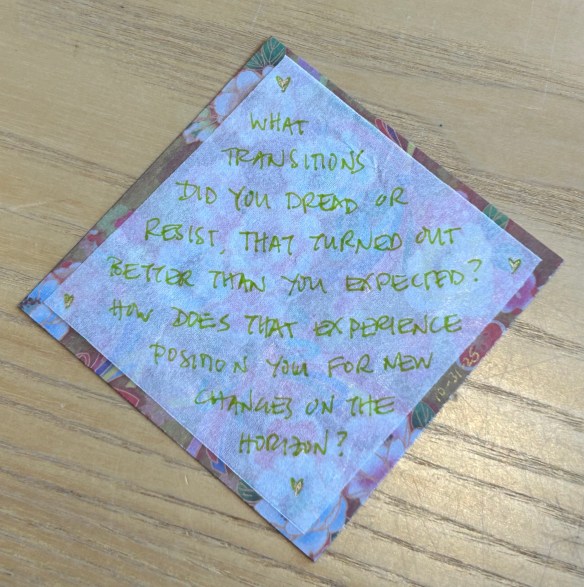 WHAT
TRANSITIONS
DID YOU DREAD OR
RESIST, THAT TURNED OUT
BETTER THAN YOU EXPECTED?
HOW DOES THAT EXPERIENCE
POSITION YOU FOR NEW
CHANGES ON THE
HORIZON?